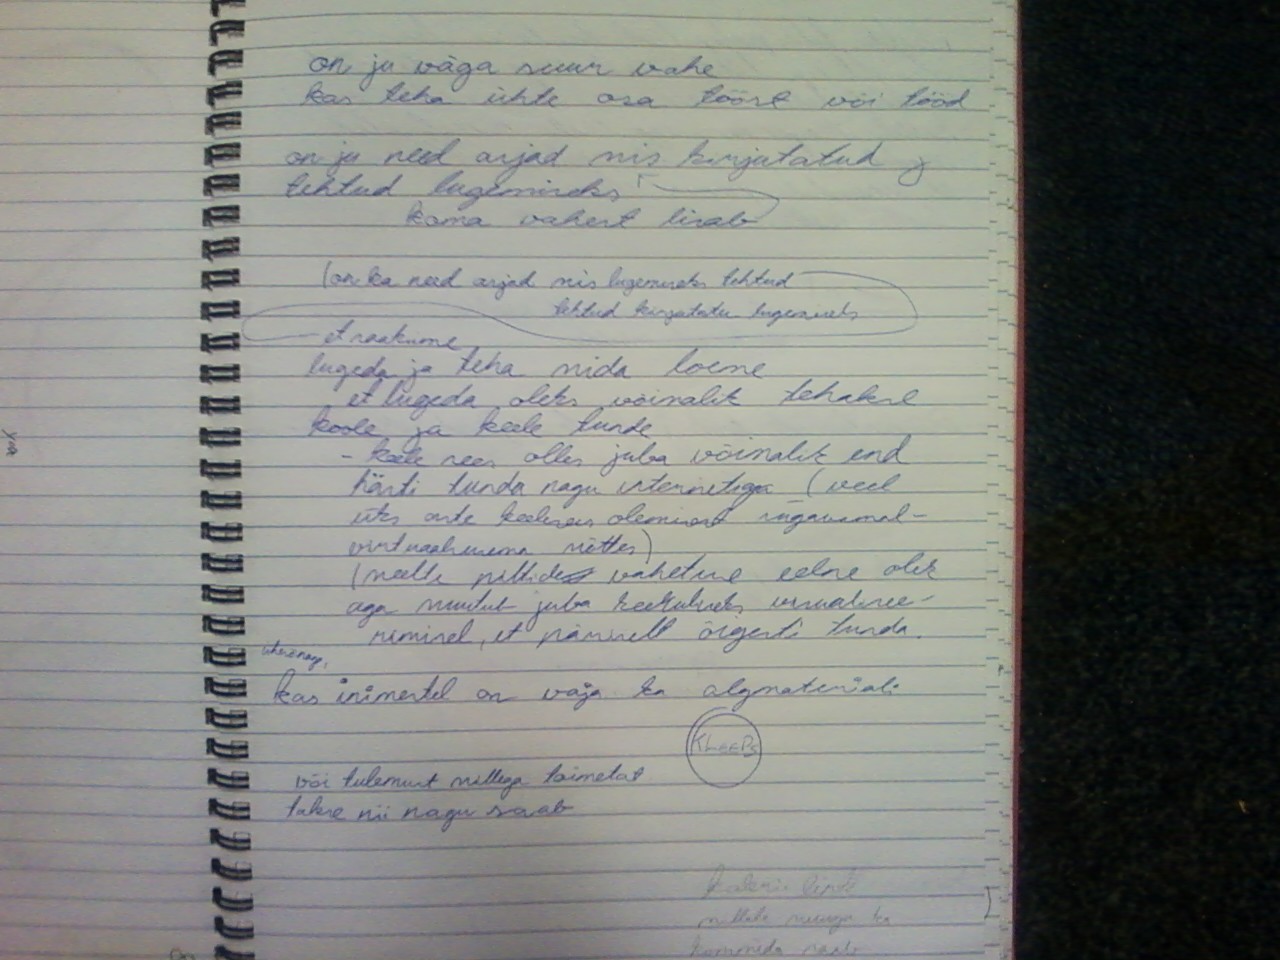 on ju väga suur vahe
kas teha ühte osa tööst või tööd
on ju need asjad mis kirjutatud
tehtud lugemiseks
koma vahest lisab
(on ka need asjad mis lugemiseks tehtud
tehtud kirjutatu lugemiseks
et raakume
lugeda ja teha mida loeme
et lugeda oleks võimalik tehakse
koole ja keele tunde
- keele sees olles juba võimalik end
hästi tunda nagu internetiga (veel
üks aste keelesees olemisest sügavamal -
virtuaalsuse mõttes)
(meelle piltide vahetuse eelne olek
aga muutub juba keekuluks visualisee-
rimisel, et päriselt õigesti tunda.
ühesõnaga,
kas inimestel on vaja ka algmaterjali
KLEEPS
või tulemust millega toimetat
takse nii nagu saab
millele
saab